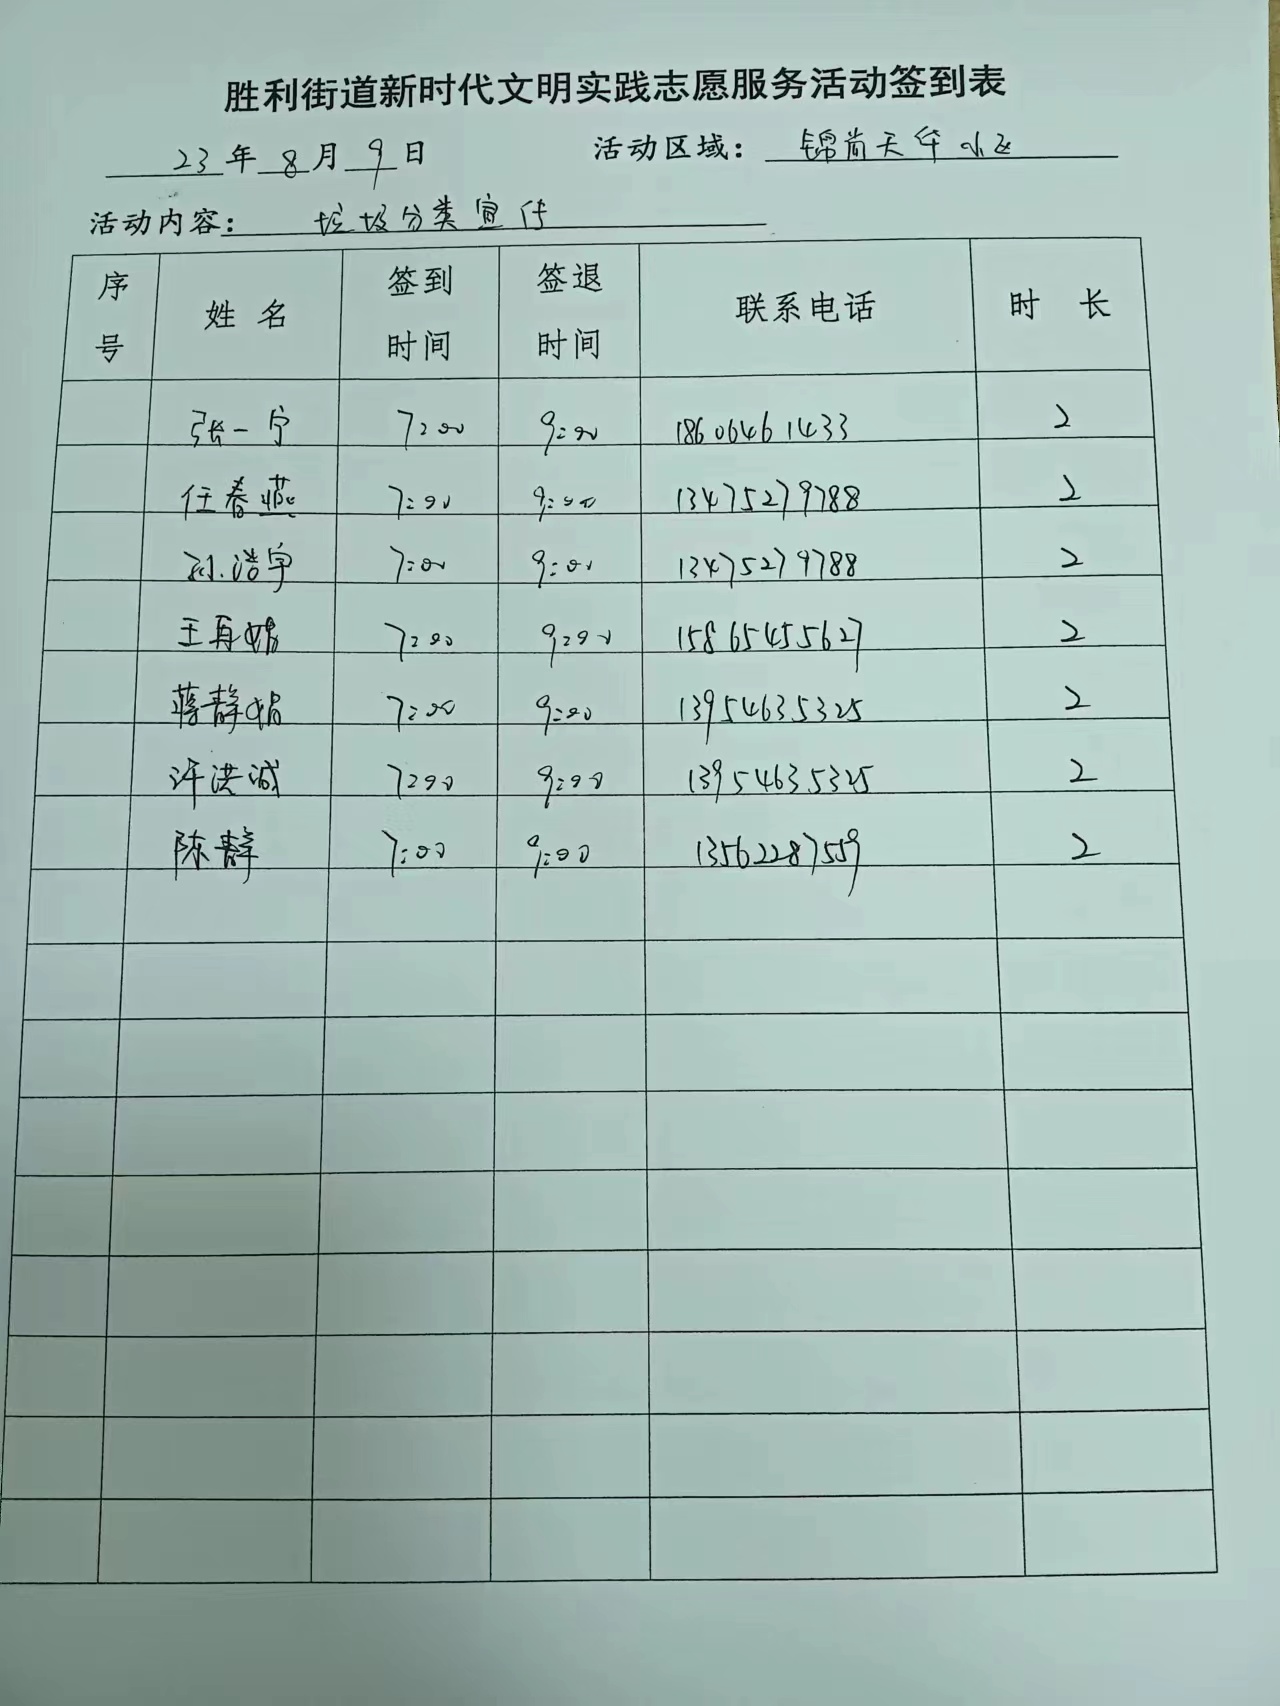 胜利街道新时代文明实践志愿服务活动签到表
23年8月9日 活动区域：锦尚天华小区
活动内容：垃圾分类宣传
序号 姓名 签到时间 签退时间 联系电话 时长
张一宁 7:00 9:00 18606461433 2
任春燕 7:00 9:00 13475279788 2
孙浩宇 7:00 9:00 13475279788 2
王再娟 7:00 9:00 15865455627 2
蒋静娟 7:00 9:00 13954635325 2
许洪诚 7:00 9:00 13954635325 2
陈静 7:00 9:00 13562287559 2